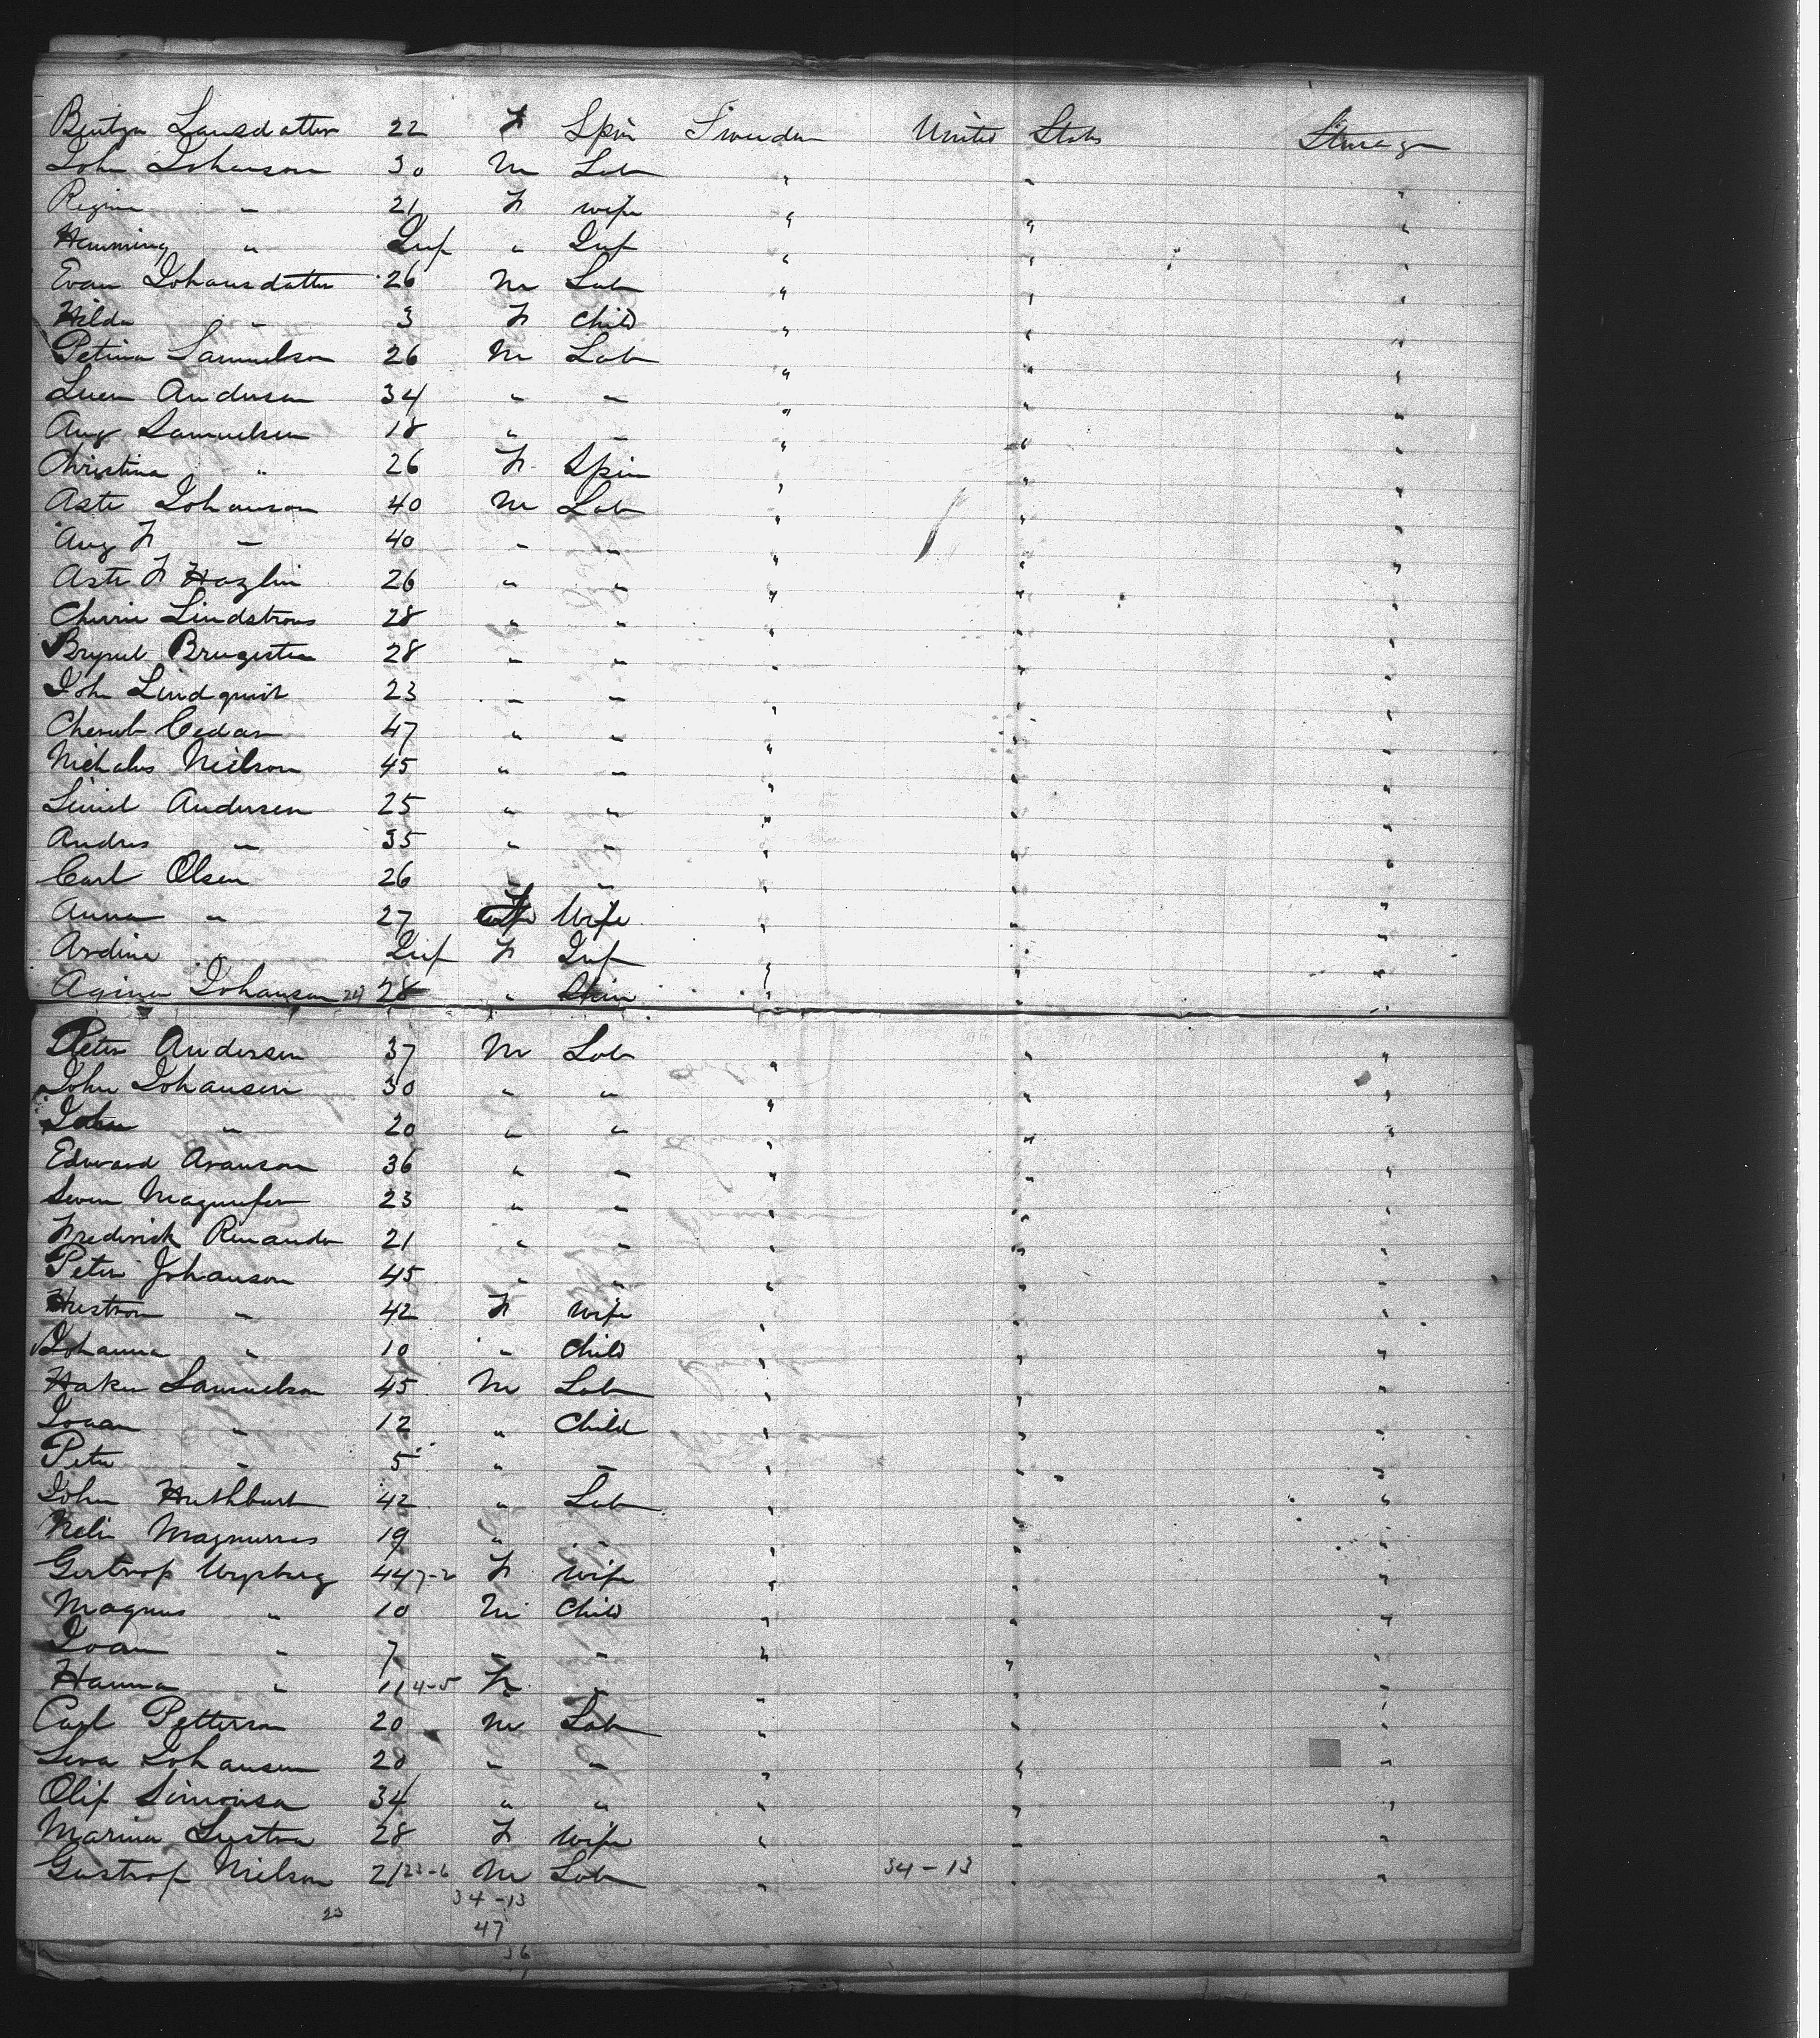 Bentza Larsdatter 22 F Spin Sweden United States Steerage
John Johanson 30 M Lab " " "
Regina " 21 F wife " " "
Hemming " Inf " Inf " " "
Evan Johansdatter 26 M Lab " " "
Hilda " 3 F Child " " "
Petrina Samuelson 26 M Lab " " "
Anderson 34 " " " " "
Aug Samuelsen 18 " " " " "
Christina " 26 F Spin " " "
Aste Johanson 40 M Lab " " "
Aug F " 40 " " " " "
Aste F Hazlin 26 " " " " "
Lindstrom 28 " " " " "
28 " " " " "
John Lindquist 23 " " " " "
Cherub Cedar 47 " " " " "
Nichalus Neilson 45 " " " " "
Andersen 25 " " " " "
Andres " 35 " " " " "
Carl Olsen 26 " " " " "
Anna " 27 F Wife " " "
Ardine Inf F Inf " " "
Agina Johanson 24 28 " Spin " " "
Peter Andersen 37 M Lab " " "
John Johansen 30 " " " " "
John " 20 " " " " "
Edward Aranson 36 " " " " "
Swen 23 " " " " "
Frederick Renander 21 " " " " "
Peter Johanson 45 " " " " "
Hustron " 42 F wife " " "
Johanna " 10 " Child " " "
Haken Samuelson 45 M Lab " " "
Johan " 12 " Child " " "
Peter " 5 " " " " "
John 42 " Lab " " "
Magnuses 19 " " " " "
Gertrop 44 7-2 F Wife " " "
Magnus " 10 M Child " " "
Ivan " 7 " " " " "
Hanna " 11 4-5 F " " " "
Carl Petterson 20 M Lab " " "
Johansen 20 " " " " "
Olif Simonsa 34 " " " " "
Marina Lustra 28 F Wife " " "
Gustrof Nielson 21 23-6 M Lab " 34-13 " "
34-13
23
47
36